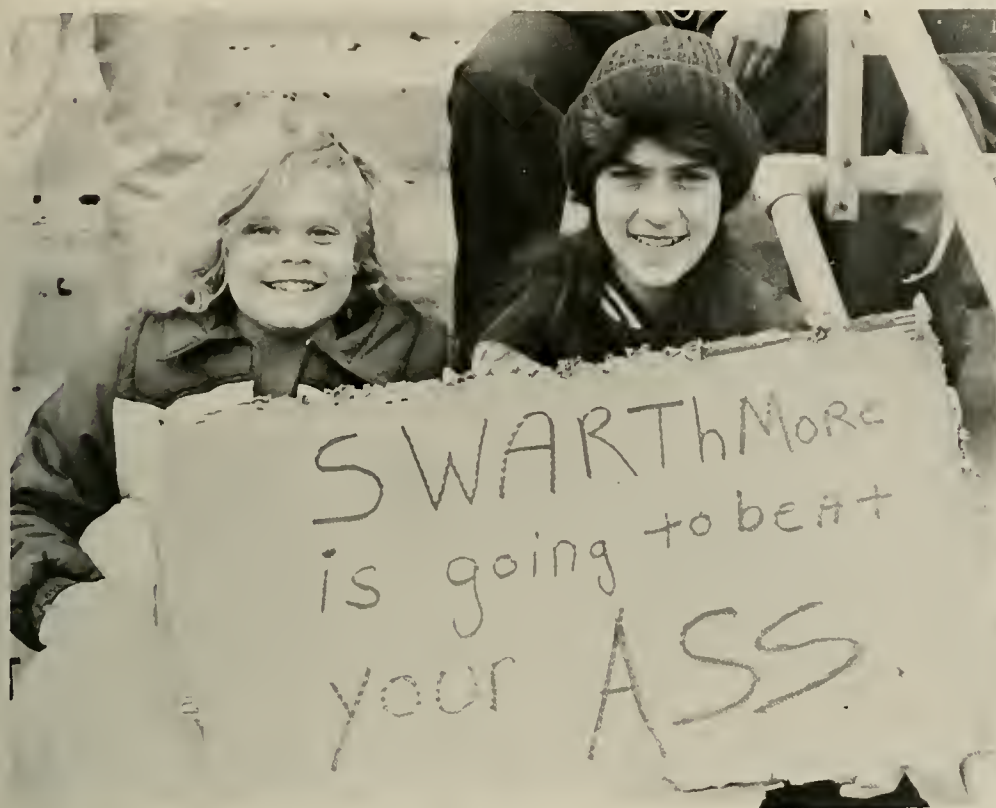 SWARThMORE
is going to beat
your ASS.